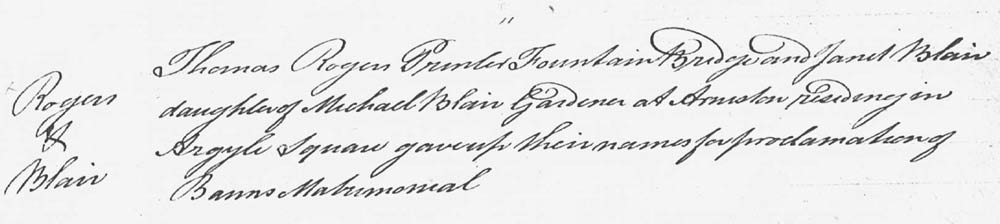 "
Thomas Rogers Printer Fountain Bridge and Janet Blair
Rogers
daughter of Michael Blair Gardener at Arniston, residing in
&
Argyle Square gave up their names for proclamation of
Blair
Banns Matrimonial